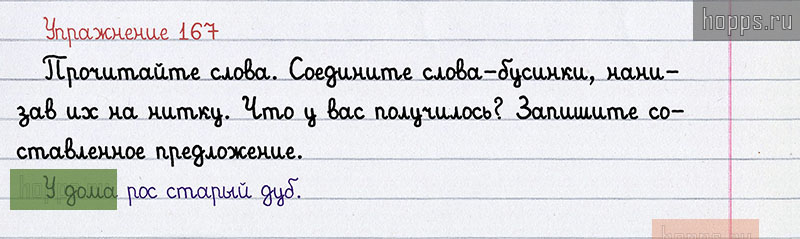 hopps.ru
Упражнение 167
Прочитайте слова. Соедините слова-бусинки, нани-
зав их на нитку. Что у вас получилось? Запишите со-
ставленное предложение.
У дома рос старый дуб.
hopps.ru